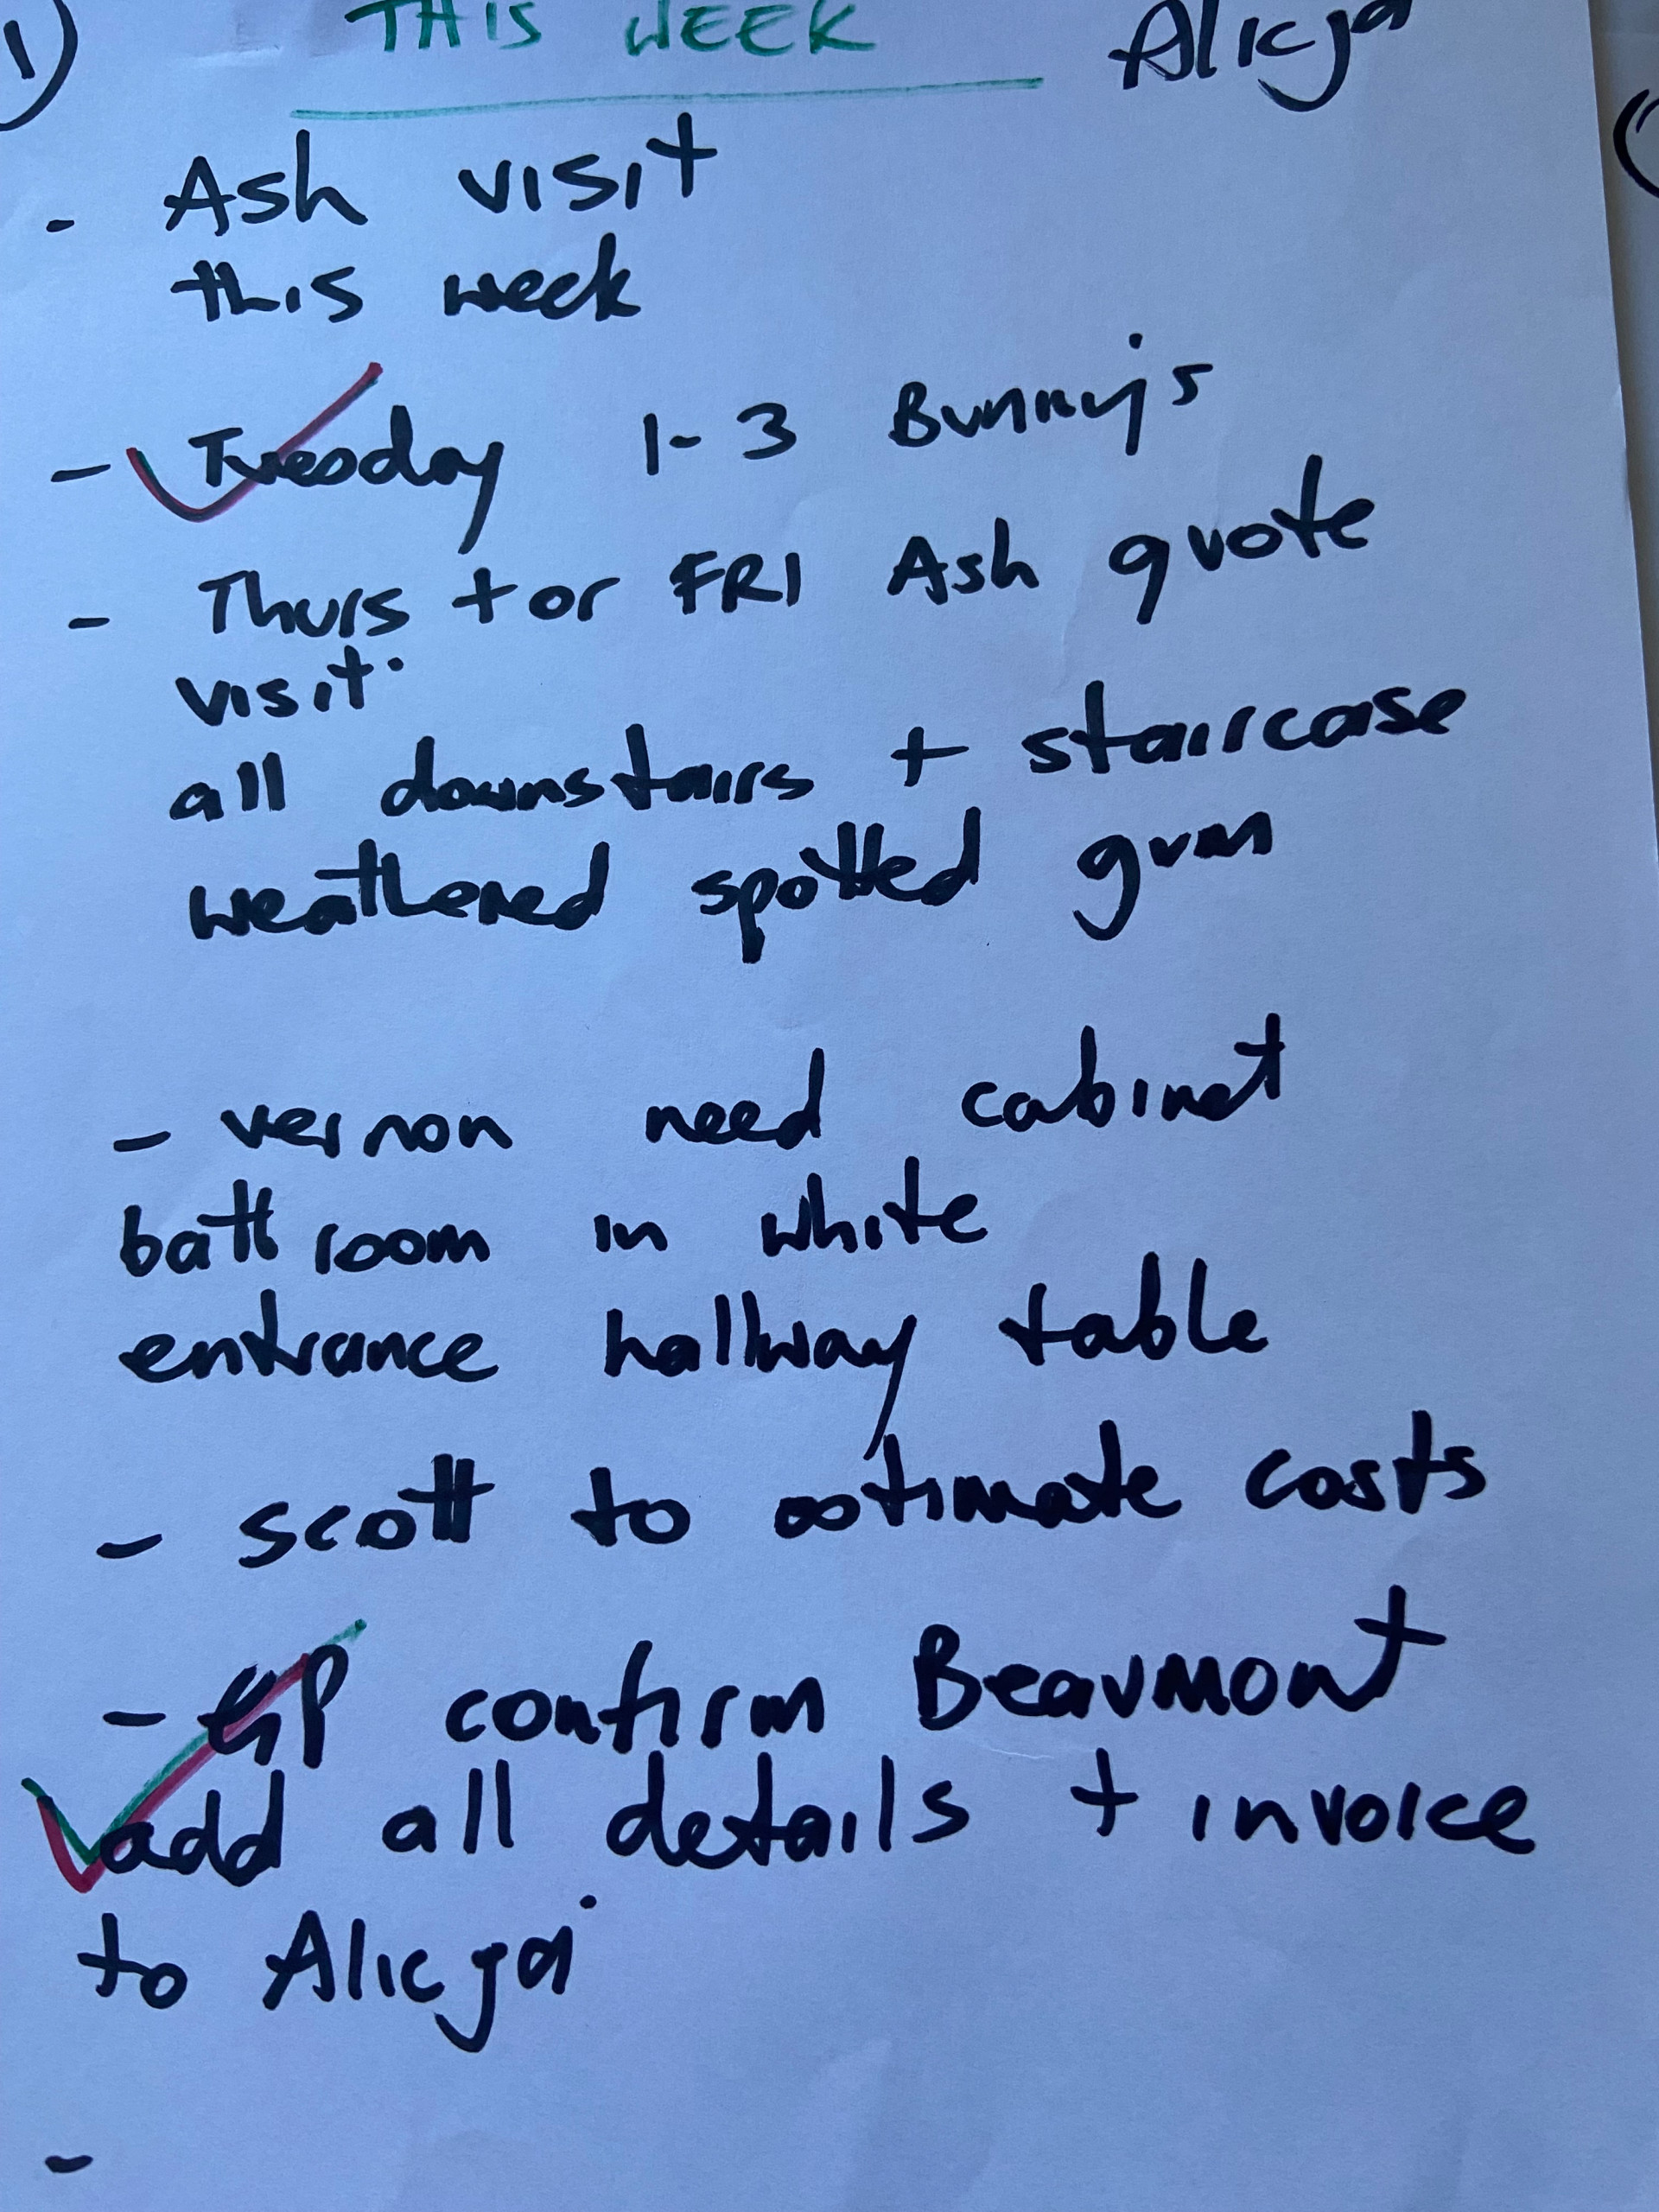 1)
THIS WEEK
Alicja
- Ash visit
this week
- Tuesday 1-3 Bunny's
- Thurs + or FRI Ash quote
visit
all downstairs + staircase
weathered spotted gum
- vernon need cabinet
bathroom in white
entrance hallway table
- scott to estimate costs
- GP confirm Beaumont
add all details + invoice
to Alicja
-